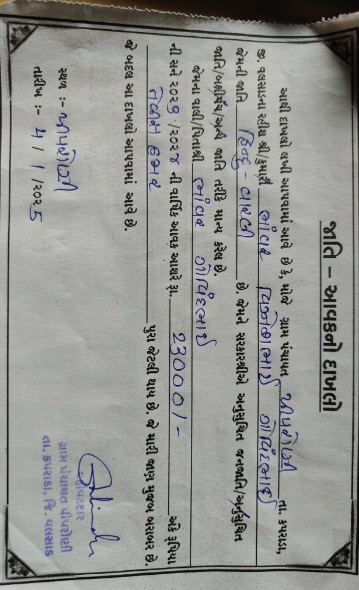 જાતિ – આવકનો દાખલો
આથી દાખલો લખી આપવામાં આવે છે કે, મોજે ગ્રામ પંચાયત પીપરોણી તા. કપરાડા,
જી. વલસાડના રહીશ શ્રી/કુમારી ભોવર ગોવિંદભાઈ
જેમની જાતિ હિન્દુ - વારલી છે જેમને સરકારશ્રીએ અનુસુચિત જનજાતિ/અનુસુચિત
જાતિ/બક્ષીપંચ/અન્ય જાતિ તરીકે માન્ય કરેલ છે.
જેમના વાલી/પિતાશ્રી ભોવર ગોવિંદભાઈ
ની સને ૨૦૨૩ /૨૦૨૪ ની વાર્ષિક આવક આશરે રૂા. 23000/- અંકે રૂપિયા
તેવીસ હજાર પુરા જેટલી થાય છે. જે મારી જાણ મુજબ બરાબર છે.
જે બદલ આ દાખલો આપવામાં આવે છે.
સ્થળ :- પીપરોણી
તારીખ :- ૫ / 1 /૨૦૨૬
ગ્રામ પંચાયત પીપરોણી
તા. કપરાડા, જિ. વલસાડ